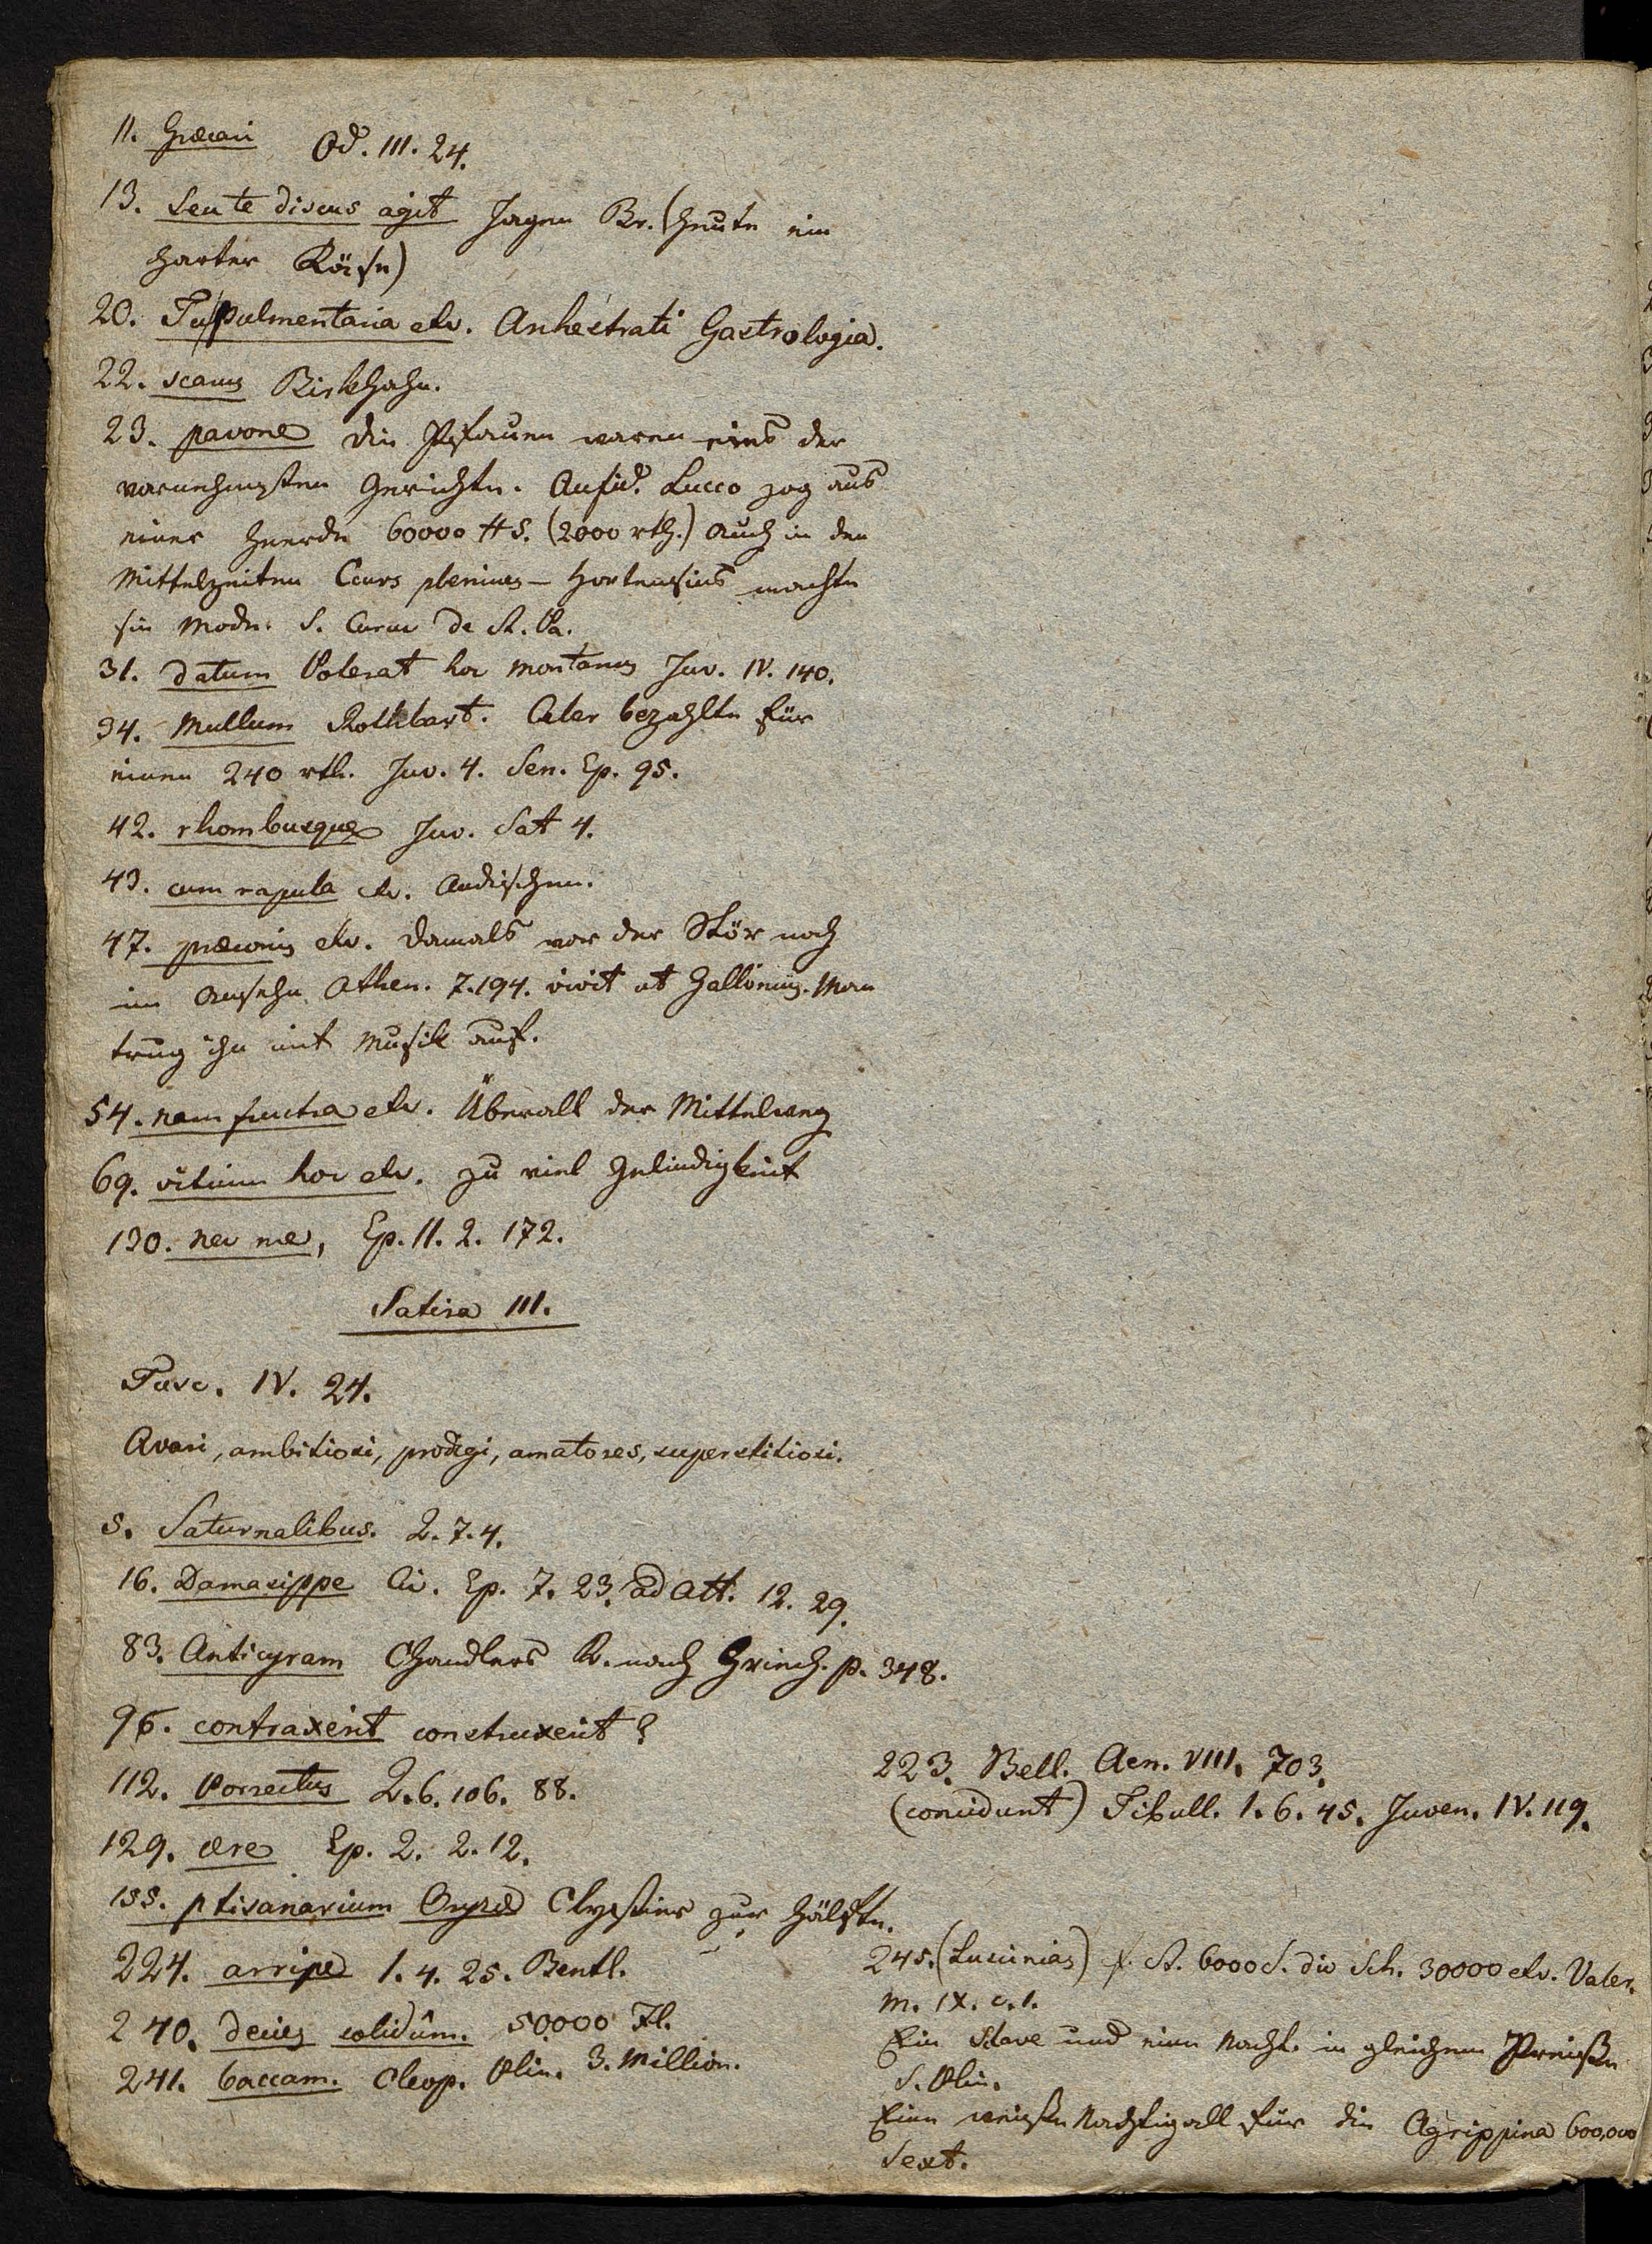 11. Græcari Od. III. 24.
13. Seu te discus agit Jagen Br. (heute ein
harter Käse)
20. Tu pulmentaria etc. Archestrati Gastrologia.
22. scarus Birkhahn.
23. pavone die Pfauen waren eins der
vornehmsten Gerichte. Aufid. Lucco zog aus
einer Heerde 60000 HS. (2000 rth.) Auch in den
Mittelzeiten Cours plenieres – Hortensius machte
sie Mode. S. Curne de St. Pa.
31. datum Poterat hoc Montanus Juv. IV. 140.
34. Mullum Rothbart. Octav bezahlte für
einen 240 rth. Juv. 4. Sen. Ep. 95.
42. rhombusque Juv. Sat 4.
43. cum rapula etc. Radischen.
47. præconis etc. Damals war der Stör noch
im Ansehn Athen. 7. 194. vivit ut Gallonius. Man
trug ihn mit Musik auf.
54. nam frustra etc. Überall der Mittelweg
69. vitium hoc etc. zu viel Gelindigkeit
130. nec me, Ep. II. 2. 172.
Satira III.
Tusc. IV. 24.
Avari, ambitiosi, prodigi, amatores, superstitiosi.
5. Saturnalibus. 2. 7. 4.
16. Damasippe Cic. Ep. 7. 23. ad Att. 12. 29.
83. Anticyram Chandlers R. nach Griech. p. 348.
96. contraxerit construxerit?
112. Porrectus 2. 6. 106. 88.
129. ære Ep. 2. 2. 12.
155. ptisanarium Oryzæ Clystier zur Hälfte.
224. arripe 1. 4. 25. Bentl.
240. decies solidûm. 50000 Fl.
241. baccam. Cleop. Plin. 3. Million.
223. Bell. Aen. VIII. 703.
(concidunt) Tibull. 1. 6. 45. Juven. IV. 119.
245. (Luscinias) f. St. 6000 S. die Sch. 30000 etc. Valer.
M. IX. c. 1.
Ein Slave und eine Nacht. in gleichem Preiße
S. Plin.
Eine weiße Nachtigall für die Agrippina 600,000
Sext.